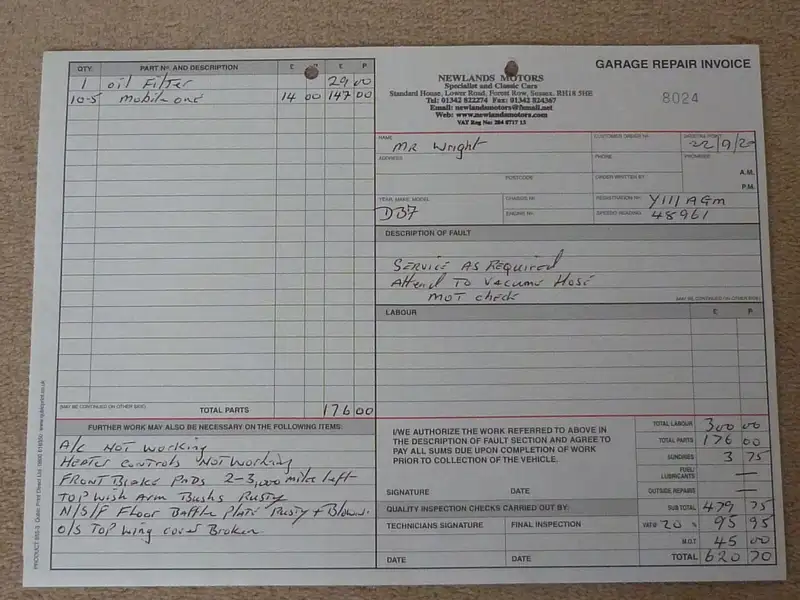 QTY. PART Nº AND DESCRIPTION £ P £ P
1 oil Filter 29 00
10-5 Mobil one 14 00 147 00
(MAY BE CONTINUED ON OTHER SIDE) TOTAL PARTS 176 00
FURTHER WORK MAY ALSO BE NECESSARY ON THE FOLLOWING ITEMS:
A/C NOT Working
HEATER CONTROLS NOT Working
FRONT Brake PADS 2-3,000 miles Left
TOP Wish Arm Bushs Rusty
N/S/F Floor Baffle PLATE Rusty + Blown.
O/S TOP Wing cover Broken
GARAGE REPAIR INVOICE
NEWLANDS MOTORS
Specialist and Classic Cars
Standard House, Lower Road, Forest Row, Sussex. RH18 5HE
Tel: 01342 822274 Fax: 01342 824367
Email: newlandsmotors@fsmail.net
Web: www.newlandsmotors.com
VAT Reg No: 284 8717 13
8024
NAME Mr Wright
CUSTOMER ORDER Nº
22/9/20
ADDRESS
PHONE
PROMISED
A.M.
POSTCODE
ORDER WRITTEN BY
P.M.
YEAR, MAKE, MODEL DB7
CHASSIS Nº
REGISTRATION Nº Y111 AGM
ENGINE Nº
SPEEDO READING 48961
DESCRIPTION OF FAULT
SERVICE AS Required
Attend TO VACUME Hose
MOT check
(MAY BE CONTINUED ON OTHER SIDE)
LABOUR £ P
I/WE AUTHORIZE THE WORK REFERRED TO ABOVE IN
THE DESCRIPTION OF FAULT SECTION AND AGREE TO
PAY ALL SUMS DUE UPON COMPLETION OF WORK
PRIOR TO COLLECTION OF THE VEHICLE.
SIGNATURE DATE
QUALITY INSPECTION CHECKS CARRIED OUT BY:
TECHNICIANS SIGNATURE FINAL INSPECTION
DATE DATE
TOTAL LABOUR 300 00
TOTAL PARTS 176 00
SUNDRIES 3 75
FUEL/
LUBRICANTS —
OUTSIDE REPAIRS —
SUB TOTAL 479 75
VAT@ 20 % 95 95
M.O.T 45 00
TOTAL 620 70